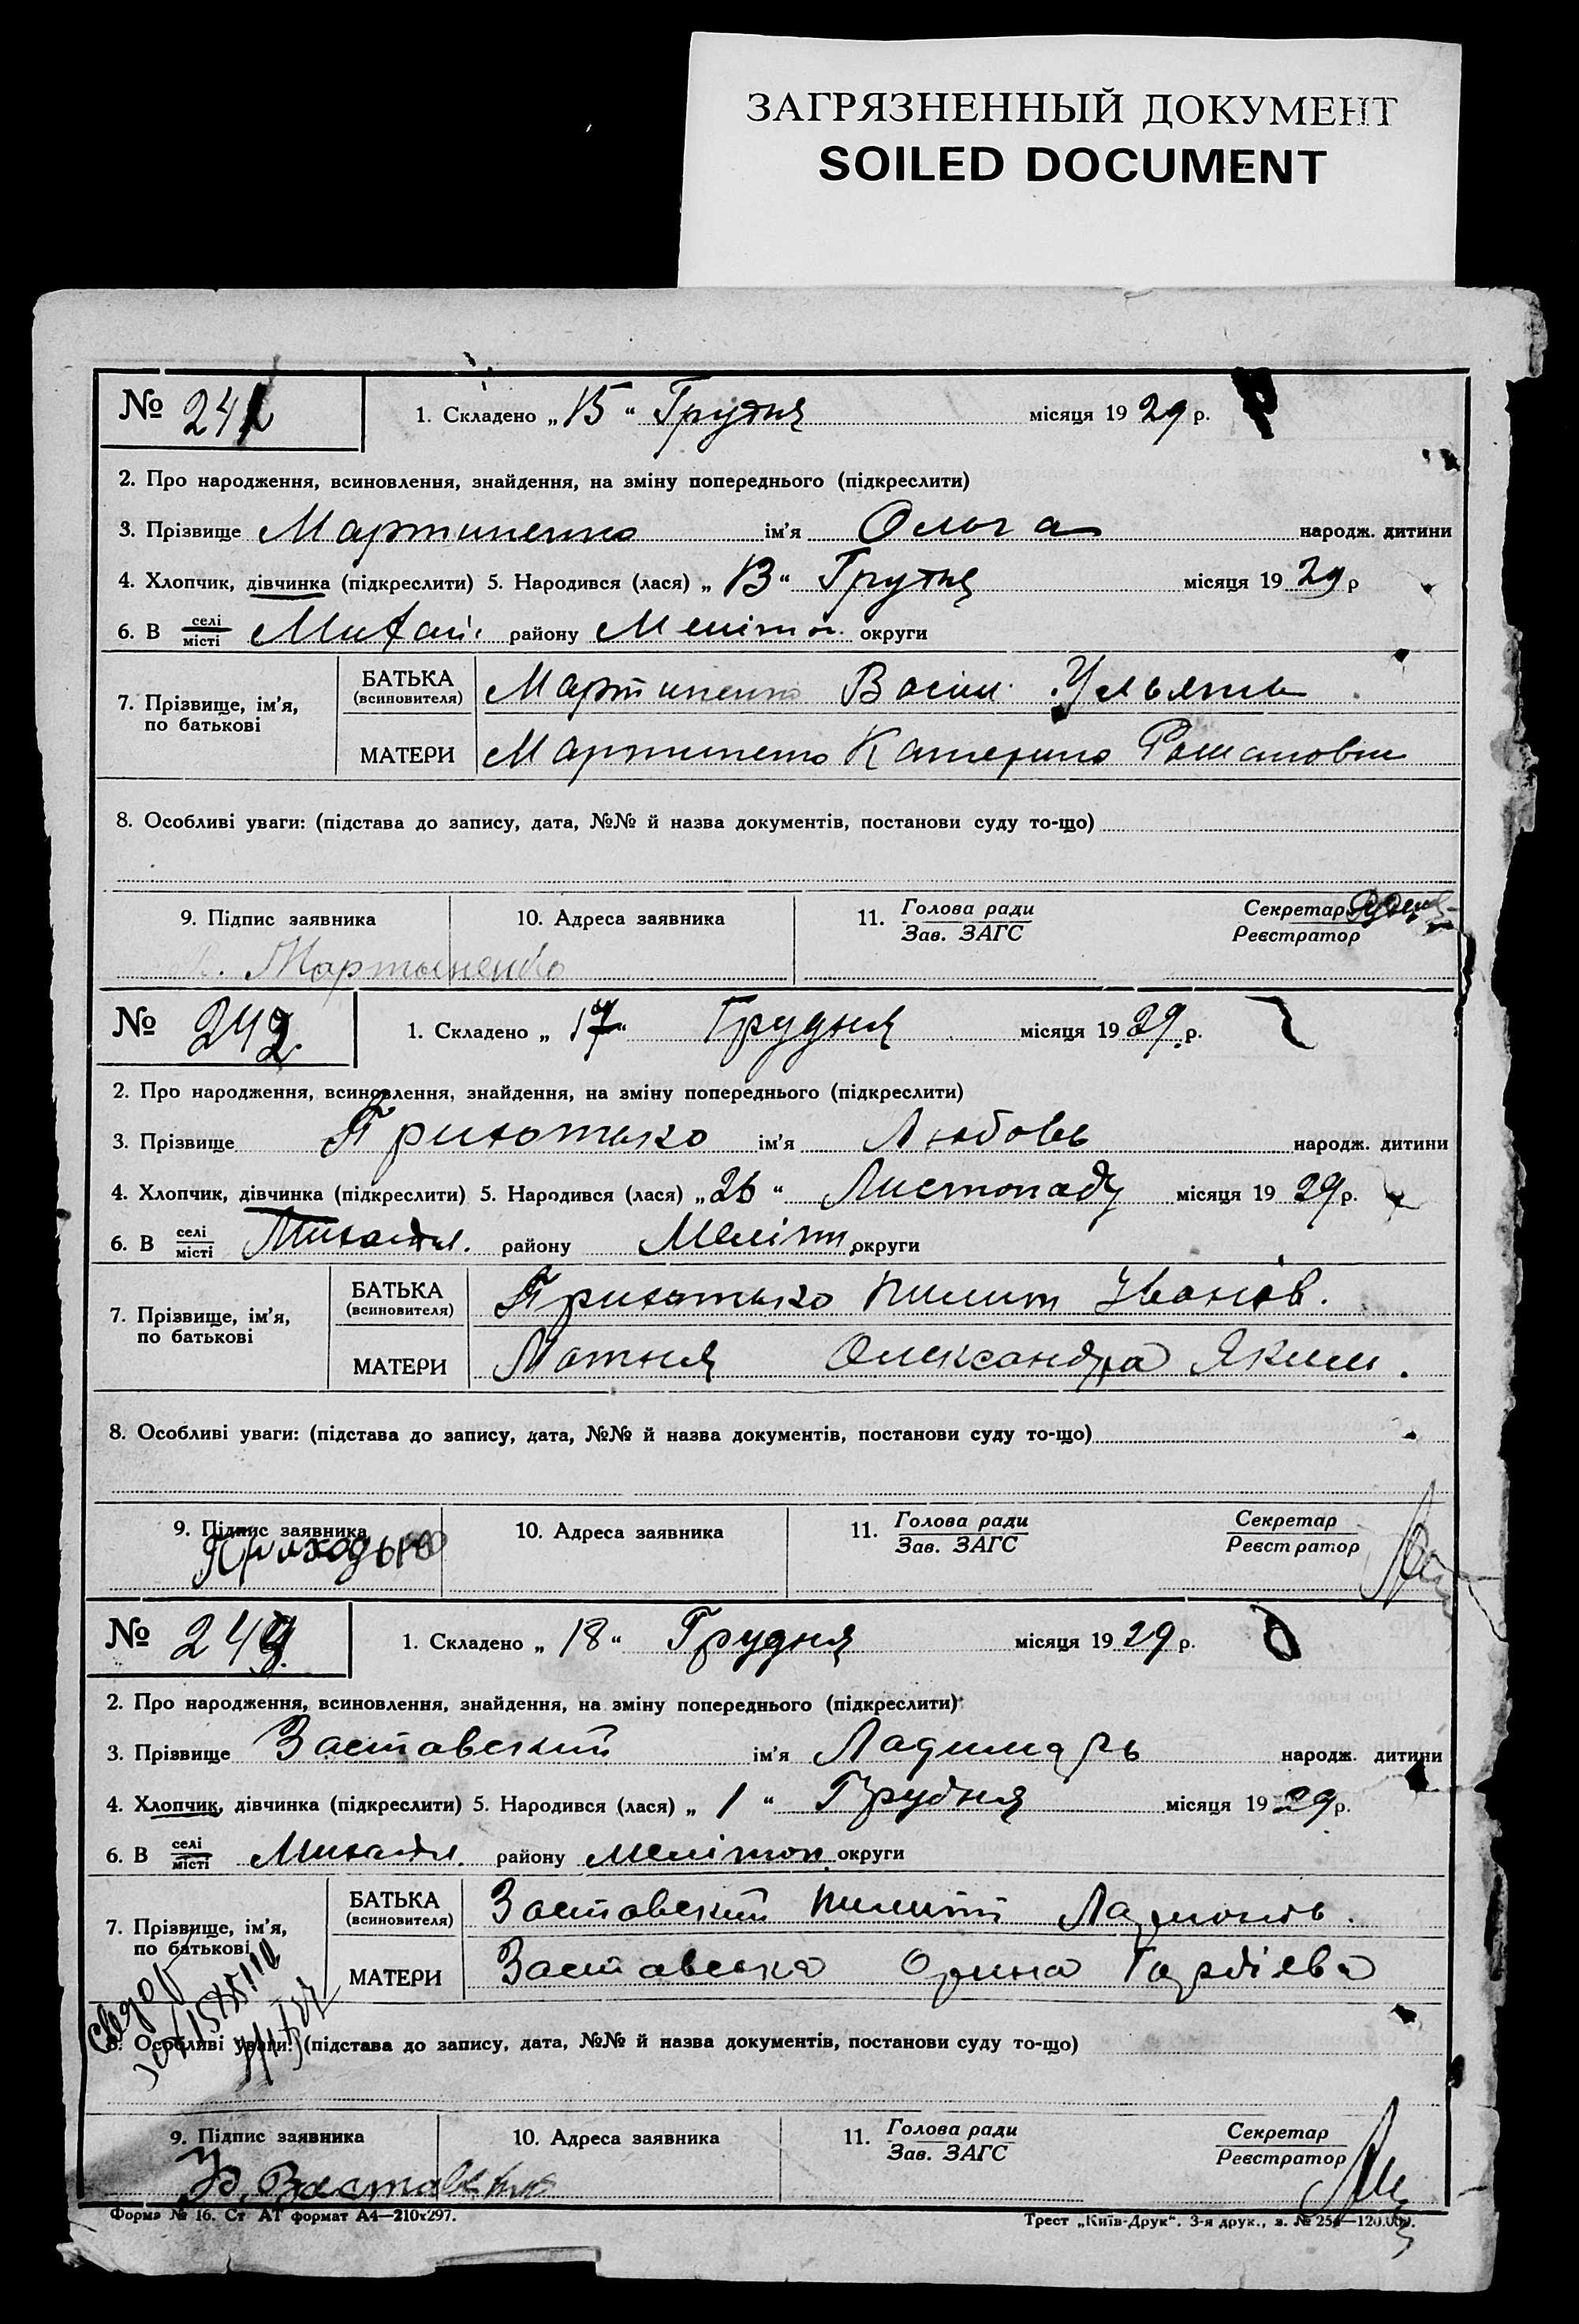 ЗАГРЯЗНЕННЫЙ ДОКУМЕНТ
SOILED DOCUMENT
№ 241 1. Складено „15“ Грудня місяця 1929 р.
2. Про народження, всиновлення, знайдення, на зміну попереднього (підкреслити)
3. Прізвище Мартиненко ім’я Ольга народж. дитини
4. Хлопчик, дівчинка (підкреслити) 5. Народився (лася) „13“ Грудня місяця 1929 р
6. В селі/місті Михай. району Меліто. округи
7. Прізвище, ім’я, по батькові
БАТЬКА (всиновителя) Мартиненко Васил. Ульянов
МАТЕРИ Мартиненко Катерина Романовн
8. Особливі уваги: (підстава до запису, дата, №№ й назва документів, постанови суду то-що)
9. Підпис заявника 10. Адреса заявника 11. Голова ради / Зав. ЗАГС Секретар / Реєстратор
Мартыненко
№ 242 1. Складено „17“ Грудня місяця 1929 р.
2. Про народження, всиновлення, знайдення, на зміну попереднього (підкреслити)
3. Прізвище Приходько ім’я Любовь народж. дитини
4. Хлопчик, дівчинка (підкреслити) 5. Народився (лася) „26“ Листопаду місяця 1929 р.
6. В селі/місті Михайл. району Меліт. округи
7. Прізвище, ім’я, по батькові
БАТЬКА (всиновителя) Приходько Пилип Іванов.
МАТЕРИ Мотня Олександра Яким.
8. Особливі уваги: (підстава до запису, дата, №№ й назва документів, постанови суду то-що)
9. Підпис заявника 10. Адреса заявника 11. Голова ради / Зав. ЗАГС Секретар / Реєстратор
Приходько
№ 1. Складено „18“ Грудня місяця 1929 р.
2. Про народження, всиновлення, знайдення, на зміну попереднього (підкреслити)
3. Прізвище Заставский ім’я Ладимарь народж. дитини
4. Хлопчик, дівчинка (підкреслити) 5. Народився (лася) „1“ Грудня місяця 1929 р.
6. В селі/місті Михайл. району Мелітоп. округи
7. Прізвище, ім’я, по батькові
БАТЬКА (всиновителя) Заставский Пилип
МАТЕРИ Заставська Орина Гордієва
8. Особливі уваги: (підстава до запису, дата, №№ й назва документів, постанови суду то-що)
9. Підпис заявника 10. Адреса заявника 11. Голова ради / Зав. ЗАГС Секретар / Реєстратор
Заставский
Форма № 16. Ст АТ формат А4—210х297. Трест „Київ-Друк“. 3-я друк., з. № 254—120.000.